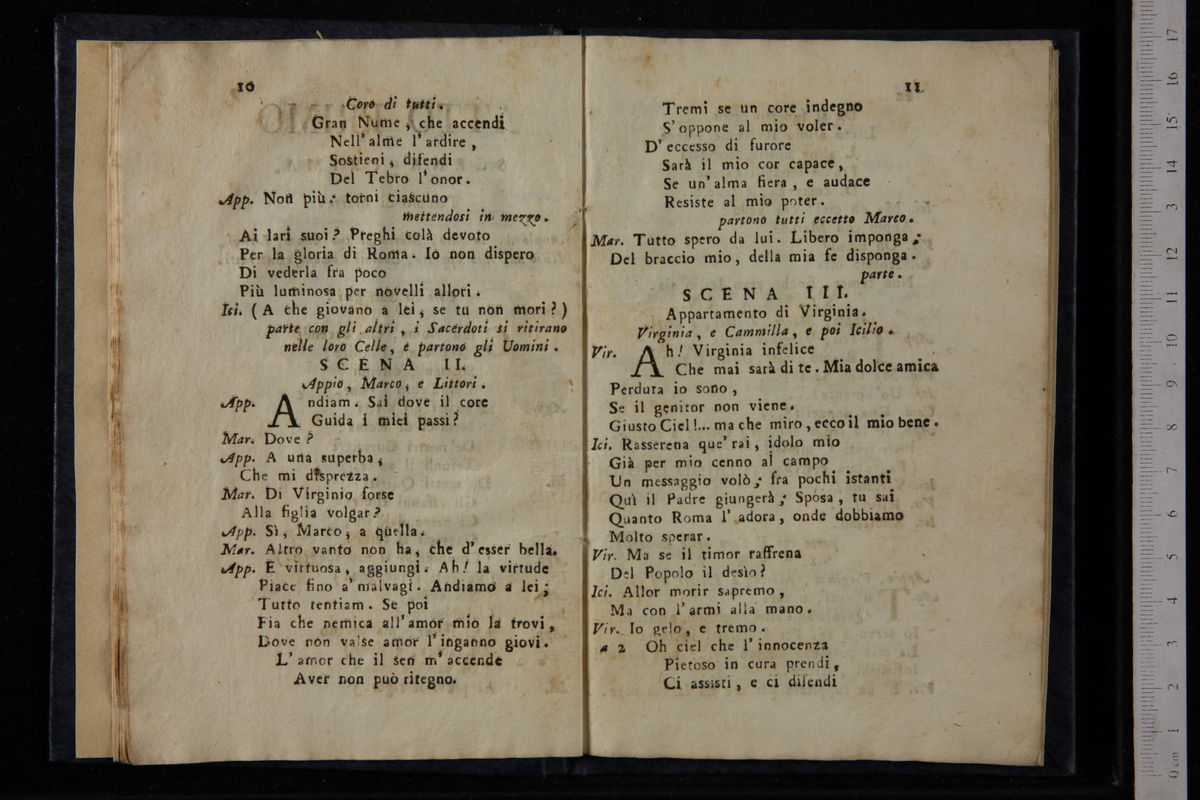 10
Coro di tutti.
Gran Nume, che accendi
Nell'alme l'ardire,
Sostieni, difendi
Del Tebro l'onor.
App. Non più: torni ciascuno
mettendosi in mezzo.
Ai lari suoi? Preghi colà devoto
Per la gloria di Roma. Io non dispero
Di vederla fra poco
Più luminosa per novelli allori.
Ici. (A che giovano a lei, se tu non mori?)
parte con gli altri, i Sacerdoti si ritirano
nelle loro Celle, e partono gli Uomini.
SCENA II.
Appio, Marco, e Littori.
App. Andiam. Sai dove il core
Guida i miei passi?
Mar. Dove?
App. A una superba,
Che mi disprezza.
Mar. Di Virginio forse
Alla figlia volgar?
App. Sì, Marco, a quella.
Mar. Altro vanto non ha, che d'esser bella.
App. E virtuosa, aggiungi. Ah! la virtude
Piace fino a'malvagi. Andiamo a lei;
Tutto tentiam. Se poi
Fia che nemica all'amor mio la trovi,
Dove non valse amor l'inganno giovi.
L'amor che il sen m'accende
Aver non può ritegno.
11
Tremi se un core indegno
S'oppone al mio voler.
D'eccesso di furore
Sarà il mio cor capace,
Se un'alma fiera, e audace
Resiste al mio poter.
partono tutti eccetto Marco.
Mar. Tutto spero da lui. Libero imponga;
Del braccio mio, della mia fe disponga.
parte.
SCENA III.
Appartamento di Virginia.
Virginia, e Cammilla, e poi Icilio.
Vir. Ah! Virginia infelice
Che mai sarà di te. Mia dolce amica
Perduta io sono,
Se il genitor non viene.
Giusto Ciel!... ma che miro, ecco il mio bene.
Ici. Rasserena que'rai, idolo mio
Già per mio cenno al campo
Un messaggio volò; fra pochi istanti
Quì il Padre giungerà; Sposa, tu sai
Quanto Roma l'adora, onde dobbiamo
Molto sperar.
Vir. Ma se il timor raffrena
Del Popolo il desìo?
Ici. Allor morir sapremo,
Ma con l'armi alla mano.
Vir. Io gelo, e tremo.
a 2 Oh ciel che l'innocenza
Pietoso in cura prendi,
Ci assisti, e ci difendi
0 cm 1 2 3 4 5 6 7 8 9 10 11 12 13 14 15 16 17